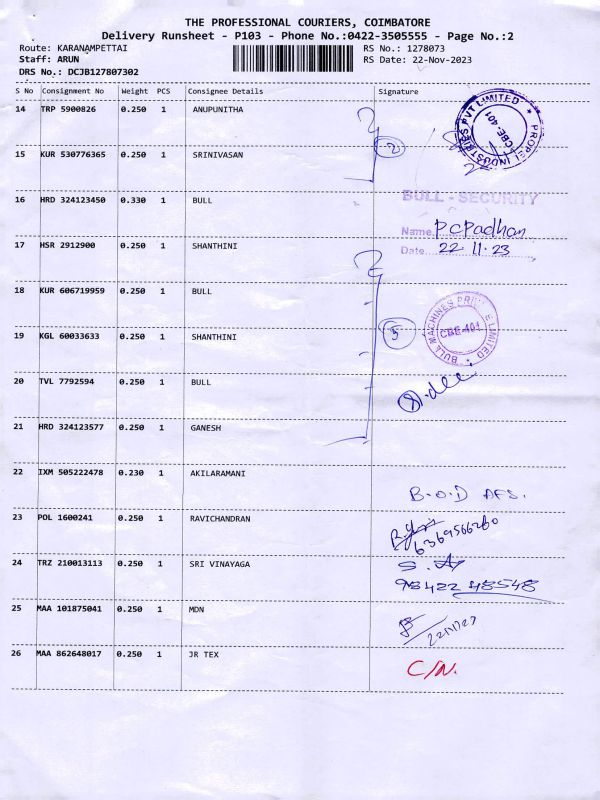 THE PROFESSIONAL COURIERS, COIMBATORE
Delivery Runsheet - P103 - Phone No.:0422-3505555 - Page No.:2
Route: KARANAMPETTAI RS No.: 1278073
Staff: ARUN RS Date: 22-Nov-2023
DRS No.: DCJB127807302
S No Consignment No Weight PCS Consignee Details Signature
14 TRP 5900826 0.250 1 ANUPUNITHA
PROPEL INDUSTRIES PVT LIMITED * CBE-401
15 KUR 530776365 0.250 1 SRINIVASAN 2
16 HRD 324123450 0.330 1 BULL BULL - SECURITY
Name PCPadhan
17 HSR 2912900 0.250 1 SHANTHINI Date 22 11 23
18 KUR 606719959 0.250 1 BULL
19 KGL 60033633 0.250 1 SHANTHINI 5
BULL MACHINES PRIVATE LIMITED * CBE-401
20 TVL 7792594 0.250 1 BULL
21 HRD 324123577 0.250 1 GANESH
22 IXM 505222478 0.230 1 AKILARAMANI B.O.D AFS.
23 POL 1600241 0.250 1 RAVICHANDRAN
6369566260
24 TRZ 210013113 0.250 1 SRI VINAYAGA
98422 48548
25 MAA 101875041 0.250 1 MDN
26 MAA 862648017 0.250 1 JR TEX C/N.